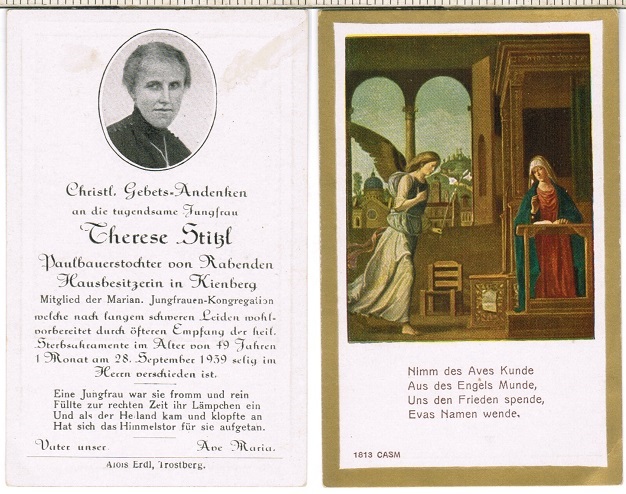 Christl. Gebets-Andenken
an die tugendsame Jungfrau
Therese Stitzl
Paulbauerstochter von Rabenden
Hausbesitzerin in Kienberg
Mitglied der Marian. Jungfrauen-Kongregation
welche nach langem schweren Leiden wohl-
vorbereitet durch öfteren Empfang der heil.
Sterbsakramente im Alter von 49 Jahren
1 Monat am 28. September 1939 selig im
Herrn verschieden ist.
Eine Jungfrau war sie fromm und rein
Füllte zur rechten Zeit ihr Lämpchen ein
Und als der Heiland kam und klopfte an
Hat sich das Himmelstor für sie aufgetan.
Vater unser. Ave Maria.
Alois Erdl, Trostberg.
Nimm des Aves Kunde
Aus des Engels Munde,
Uns den Frieden spende,
Evas Namen wende.
1813 CASM